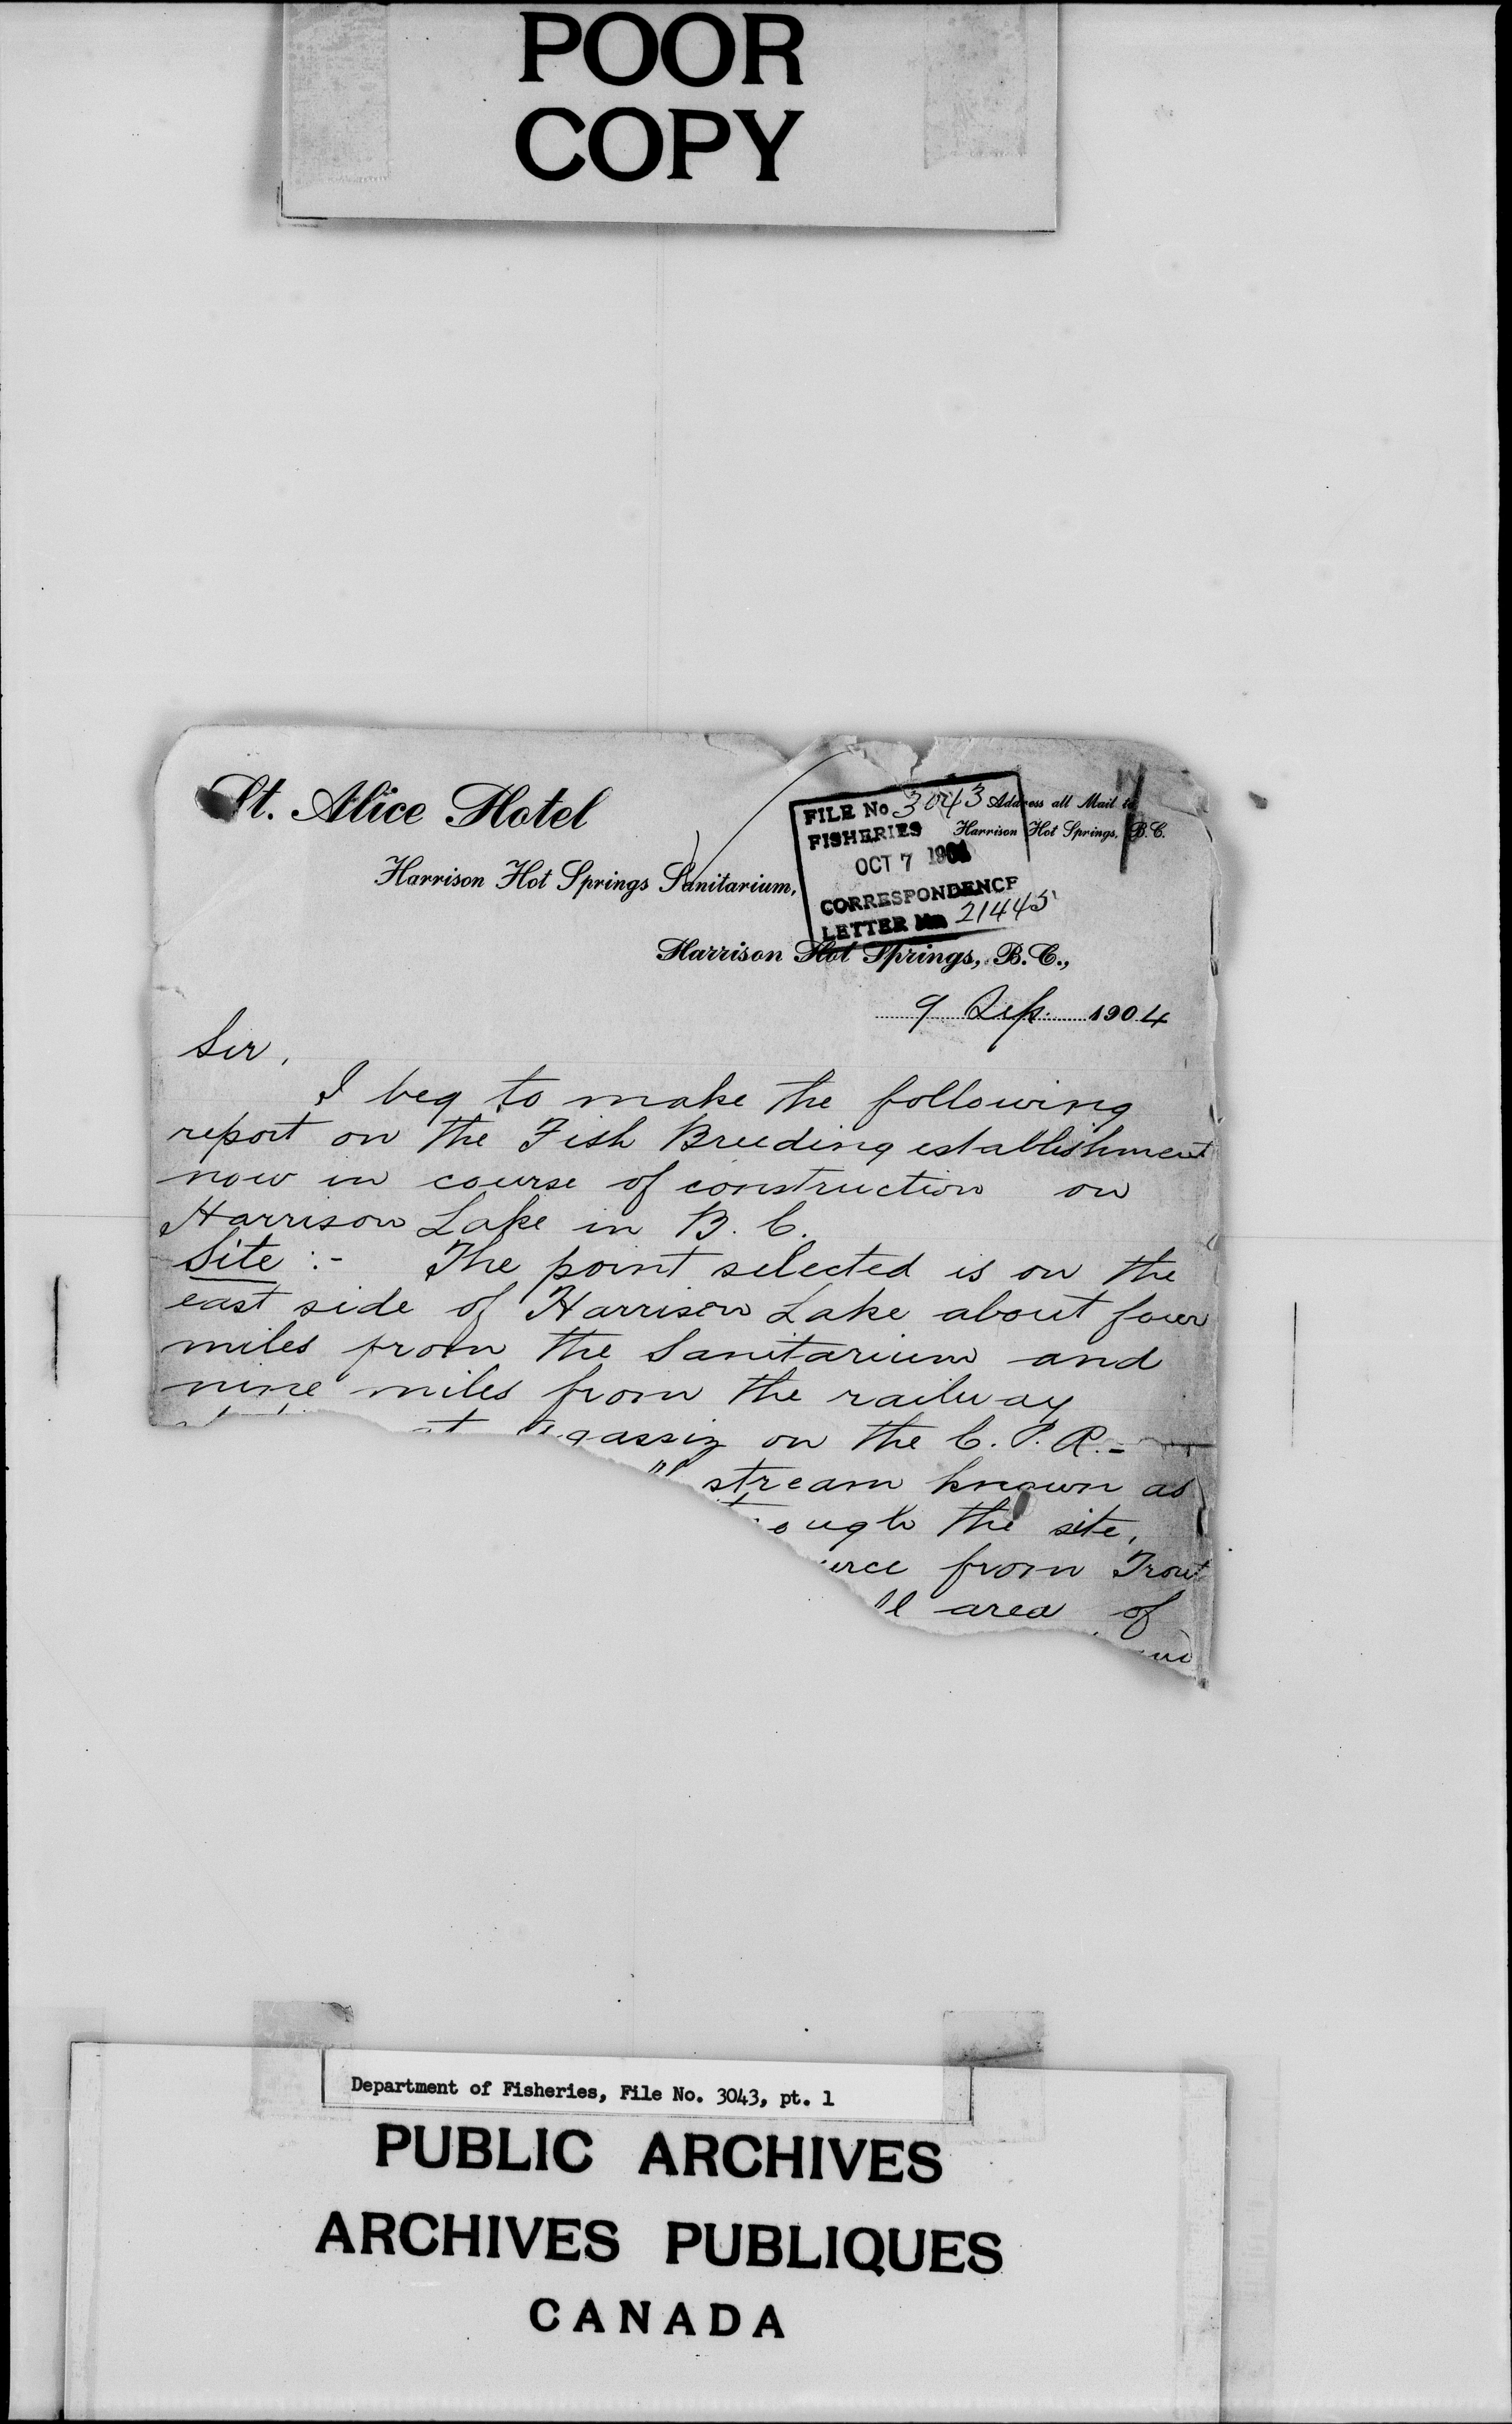 POOR
COPY
St. Alice Hotel
Harrison Hot Springs Sanitarium,
Address all Mail to
Harrison Hot Springs, B.C.
FILE No 3043
FISHERIES
OCT 7 1904
CORRESPONDENCE
LETTER No 21445
Harrison Hot Springs, B.C.,
9 Sep. 1904
Sir,
I beg to make the following
report on the Fish Breeding establishment
now in course of construction on
Harrison Lake in B.C.
Site :- The point selected is on the
east side of Harrison Lake about four
miles from the Sanitarium and
nine miles from the railway
at Agassiz on the C.P.R.-
stream known as
the site,
from Trout
area of
Department of Fisheries, File No. 3043, pt. 1
PUBLIC ARCHIVES
ARCHIVES PUBLIQUES
CANADA